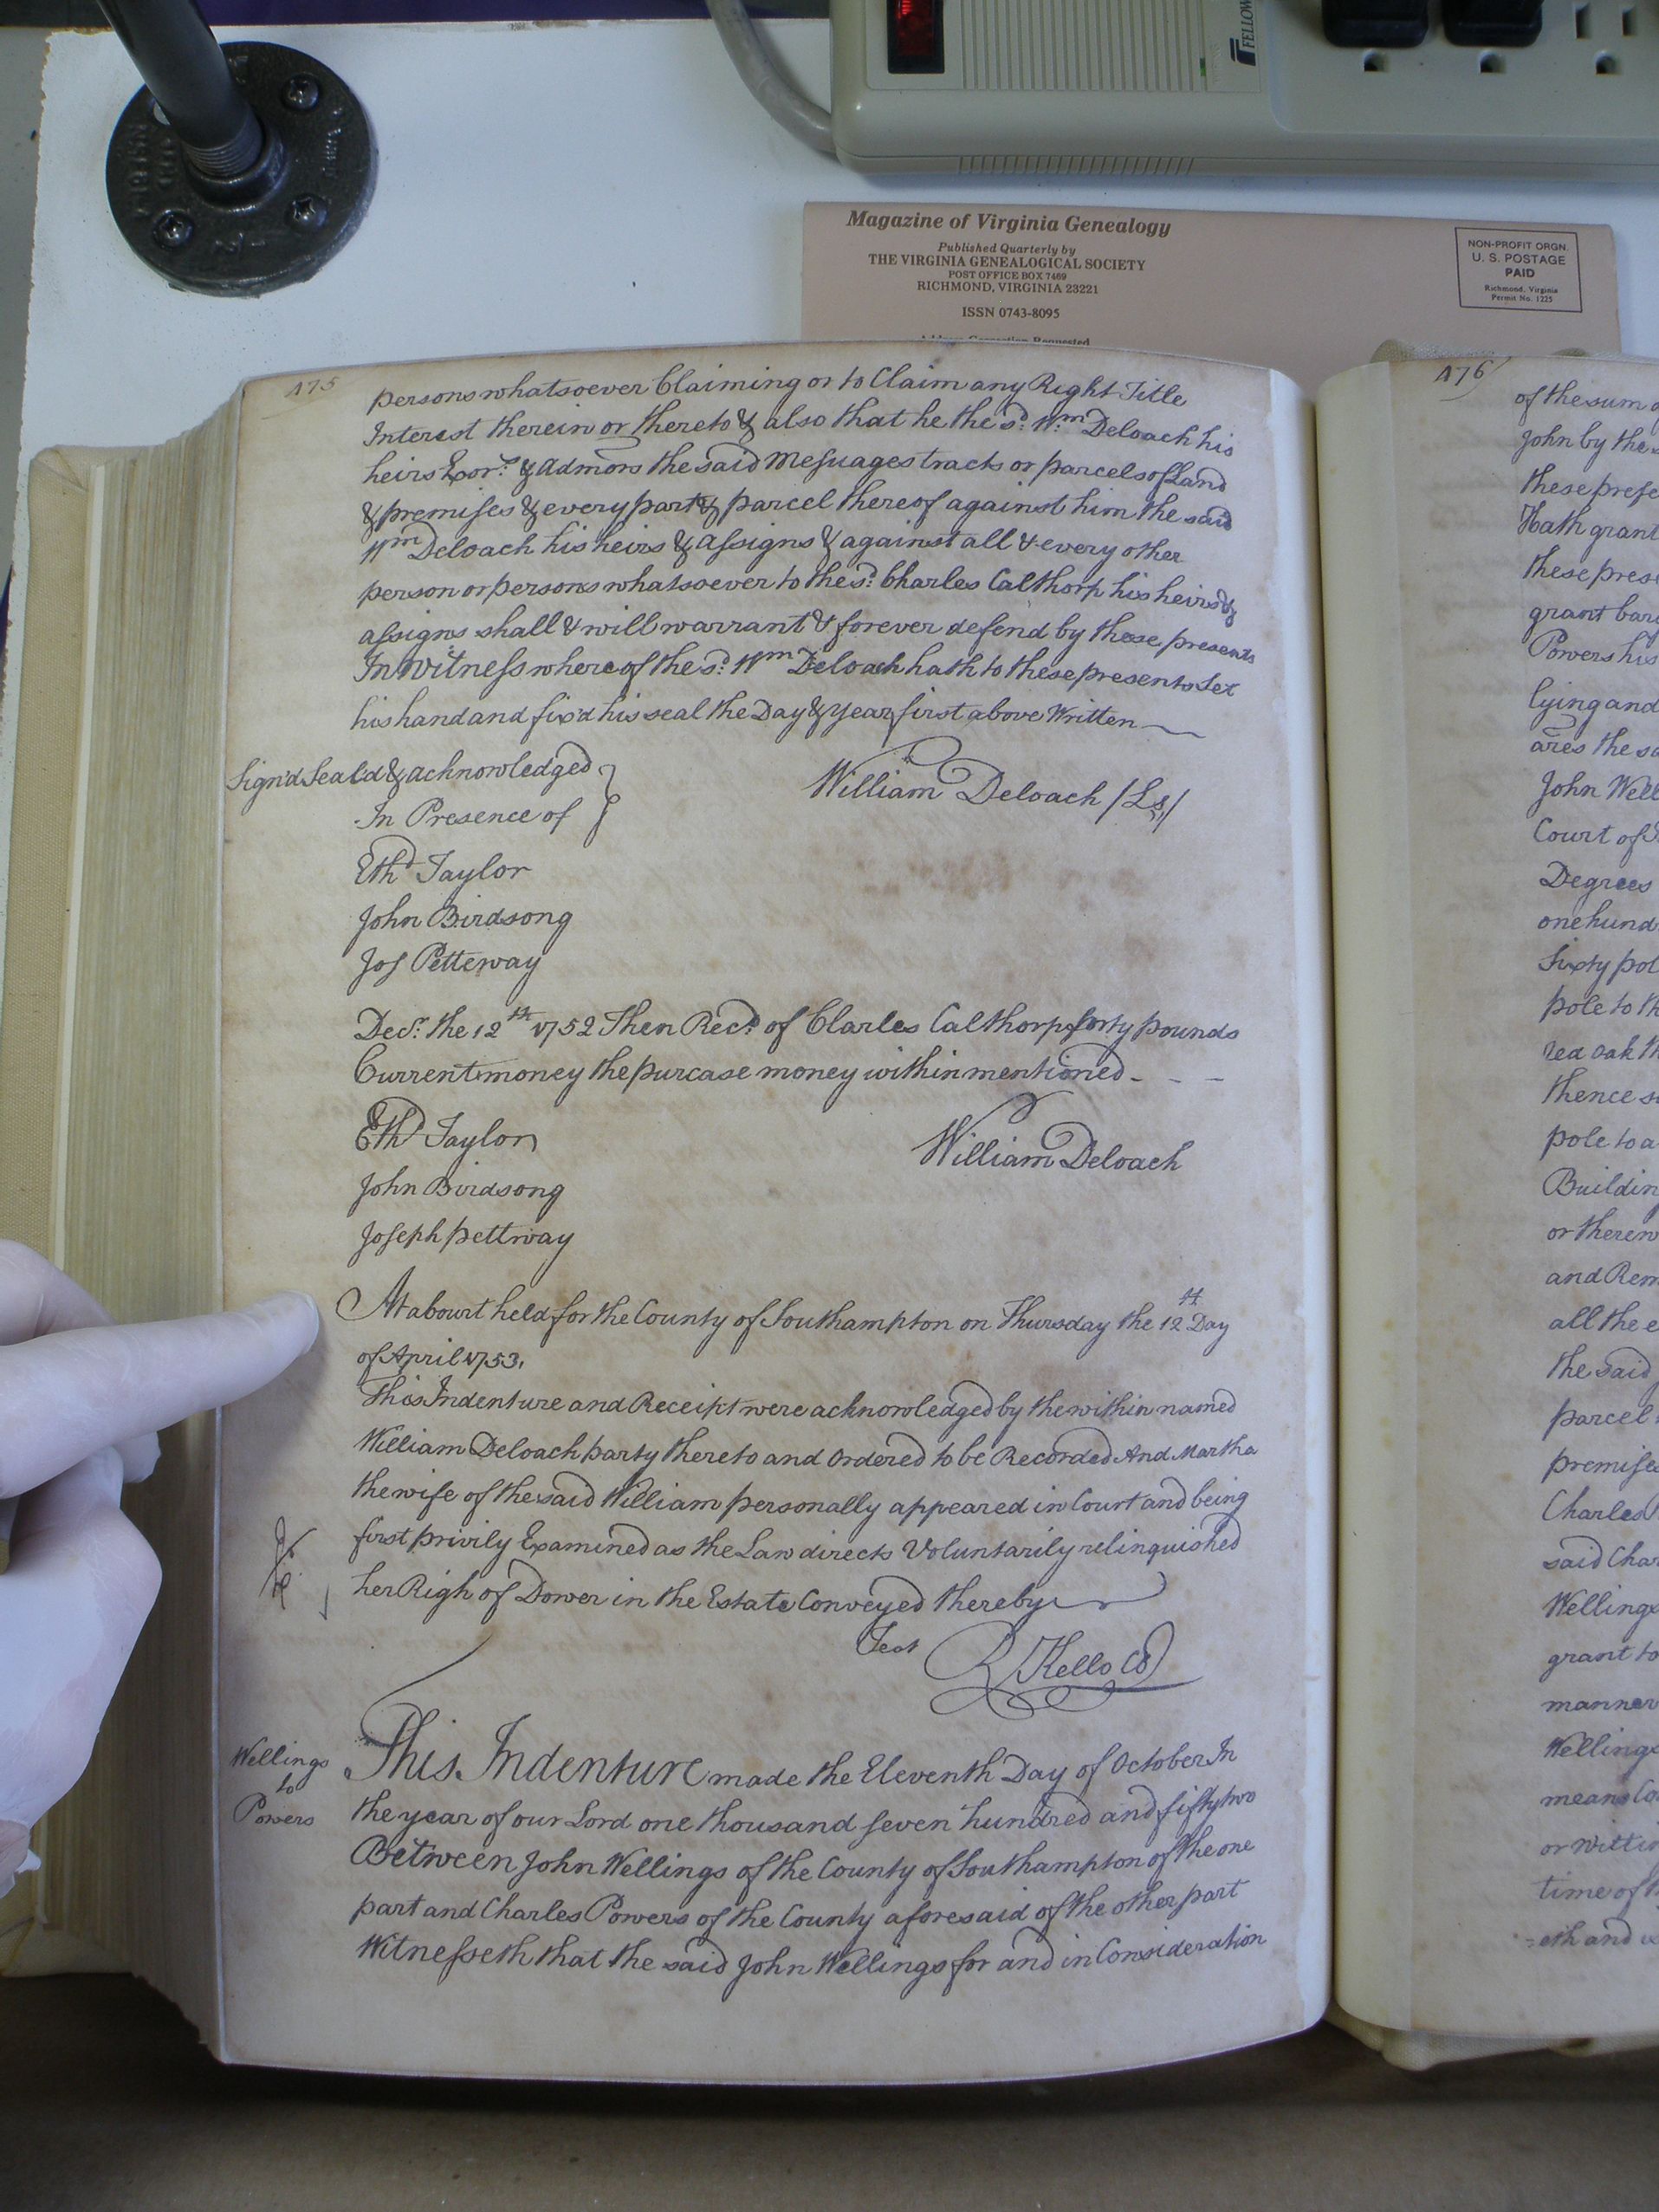 FELLOW
Magazine of Virginia Genealogy
Published Quarterly by
THE VIRGINIA GENEALOGICAL SOCIETY
POST OFFICE BOX 7469
RICHMOND, VIRGINIA 23221
ISSN 0743-8095
NON-PROFIT ORGN.
U. S. POSTAGE
PAID
Richmond, Virginia
Permit No. 1225
175
persons whatsoever Claiming or to Claim any Right Title
Interest therein or thereto & also that he the sd. Wm Deloach his
heirs Exors. & Admors the said Mesuages tracts or parcels of Land
& premises & every part & parcel thereof against him the said
Wm Deloach his heirs & assigns & against all & every other
person or persons whatsoever to the sd. Charles Calthorp his heirs &
assigns shall & will warrant & forever defend by these presents
In Witness whereof the sd. Wm Deloach hath to these presents Set
his hand and fix'd his seal the Day & Year first above Written
Sign'd Seal'd & acknowledged
In Presence of
William Deloach /Ls/
Ethd Taylor
John Birdsong
Jos Petteway
Decr. the 12th 1752 Then Recd. of Charles Calthorp forty pounds
Current money the purcase money within mentioned - - -
Ethd Taylor
William Deloach
John Birdsong
Joseph pettway
At a Court held for the County of Southampton on Thursday the 12th Day
of April 1753,
This Indenture and Receipt were acknowledged by the within named
William Deloach party thereto and Ordered to be Recorded And Martha
the wife of the said William personally appeared in Court and being
first privily Examined as the Law directs Voluntarily relinquished
her Righ of Dower in the Estate Conveyed thereby
Test R Kello Cl
Wellings
to
Powers
This Indenture made the Eleventh Day of October In
the year of our Lord one thousand seven hundred and fifty two
Between John Wellings of the County of Southampton of the one
part and Charles Powers of the County aforesaid of the other part
Witnesseth that the said John Wellings for and in Consideration
176
of the sum
John by the
these
Hath grant
these
grant
Powers his
lying and
the
John
Court of
Degrees
one
Sixty
pole to
red oak
thence
pole to a
or
and
all the
the said
parcel
Charles
said
Wellings
grant to
manner
Wellings
means
or
time of
and